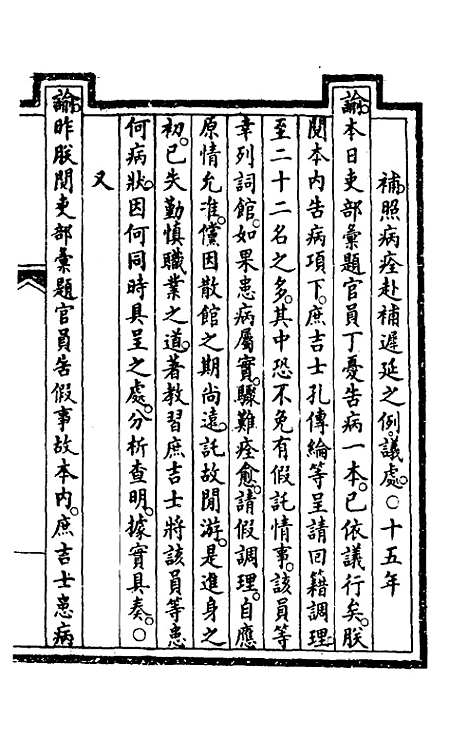 補照病痊赴補遲延之例議處。○十五年
諭本日吏部彙題官員丁憂告病一本。已依議行矣。朕
閱本内告病項下。庶吉士孔傳綸等呈請回籍調理
至二十二名之多。其中恐不免有假託情事。該員等
幸列詞館。如果患病屬實。驟難痊愈。請假調理。自應
原情允准。儻因散館之期尚遠。託故閒游。是進身之
初。已失勤慎職業之道。著教習庶吉士將該員等患
何病狀。因何同時具呈之處。分析查明。據實具奏。○
又
諭昨朕閱吏部彙題官員告假事故本内。庶吉士患病